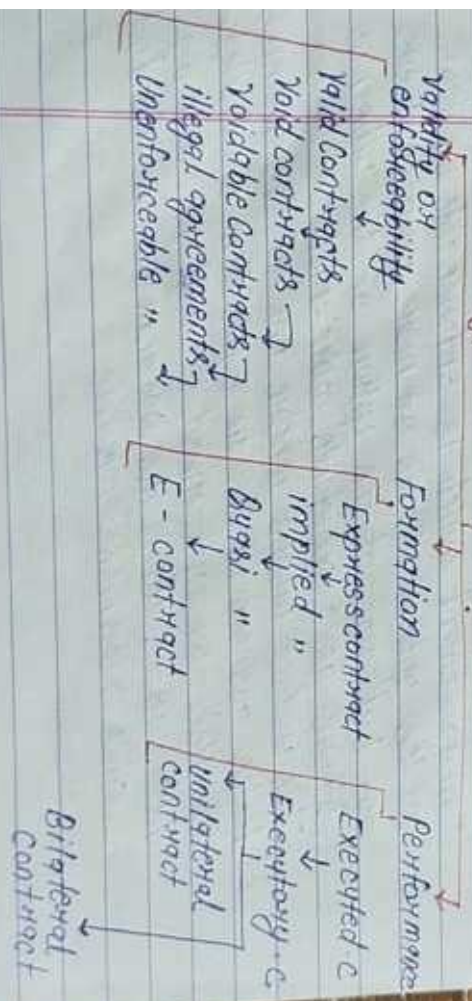 Validity or
enforceability
Valid Contracts
Void contracts
Voidable Contracts
illegal agreements
Unenforceable "
Formation
Express contract
implied "
Quasi "
E - contract
Performance
Executed C
Executory - C
Unilateral
contract
Bilateral
Contract